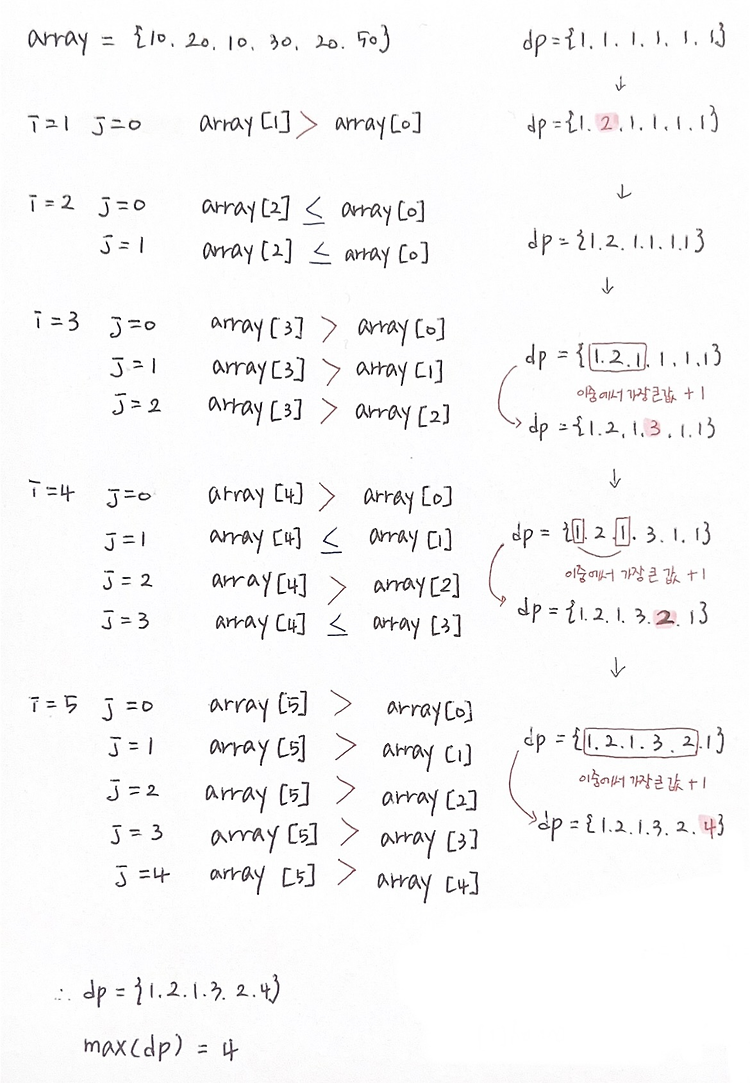 array = {10. 20. 10. 30. 20. 50}
dp={1. 1. 1. 1. 1. 1}
↓
i=1 j=0 array[1] > array[0]
dp={1. 2. 1. 1. 1. 1}
↓
i=2 j=0 array[2] ≤ array[0]
j=1 array[2] ≤ array[0]
dp={1.2.1.1.1.1}
↓
i=3 j=0 array[3] > array[0]
j=1 array[3] > array[1]
j=2 array[3] > array[2]
dp={1.2.1.1.1.1}
이중에서 가장 큰 값 +1
dp={1.2.1.3.1.1}
↓
i=4 j=0 array[4] > array[0]
j=1 array[4] ≤ array[1]
j=2 array[4] > array[2]
j=3 array[4] ≤ array[3]
dp={1.2.1.3.1.1}
이중에서 가장 큰 값 +1
dp={1.2.1.3.2.1}
↓
i=5 j=0 array[5] > array[0]
j=1 array[5] > array[1]
j=2 array[5] > array[2]
j=3 array[5] > array[3]
j=4 array[5] > array[4]
dp={1.2.1.3.2.1}
이중에서 가장 큰 값 +1
dp={1.2.1.3.2.4}
∴ dp={1.2.1.3.2.4}
max(dp) = 4